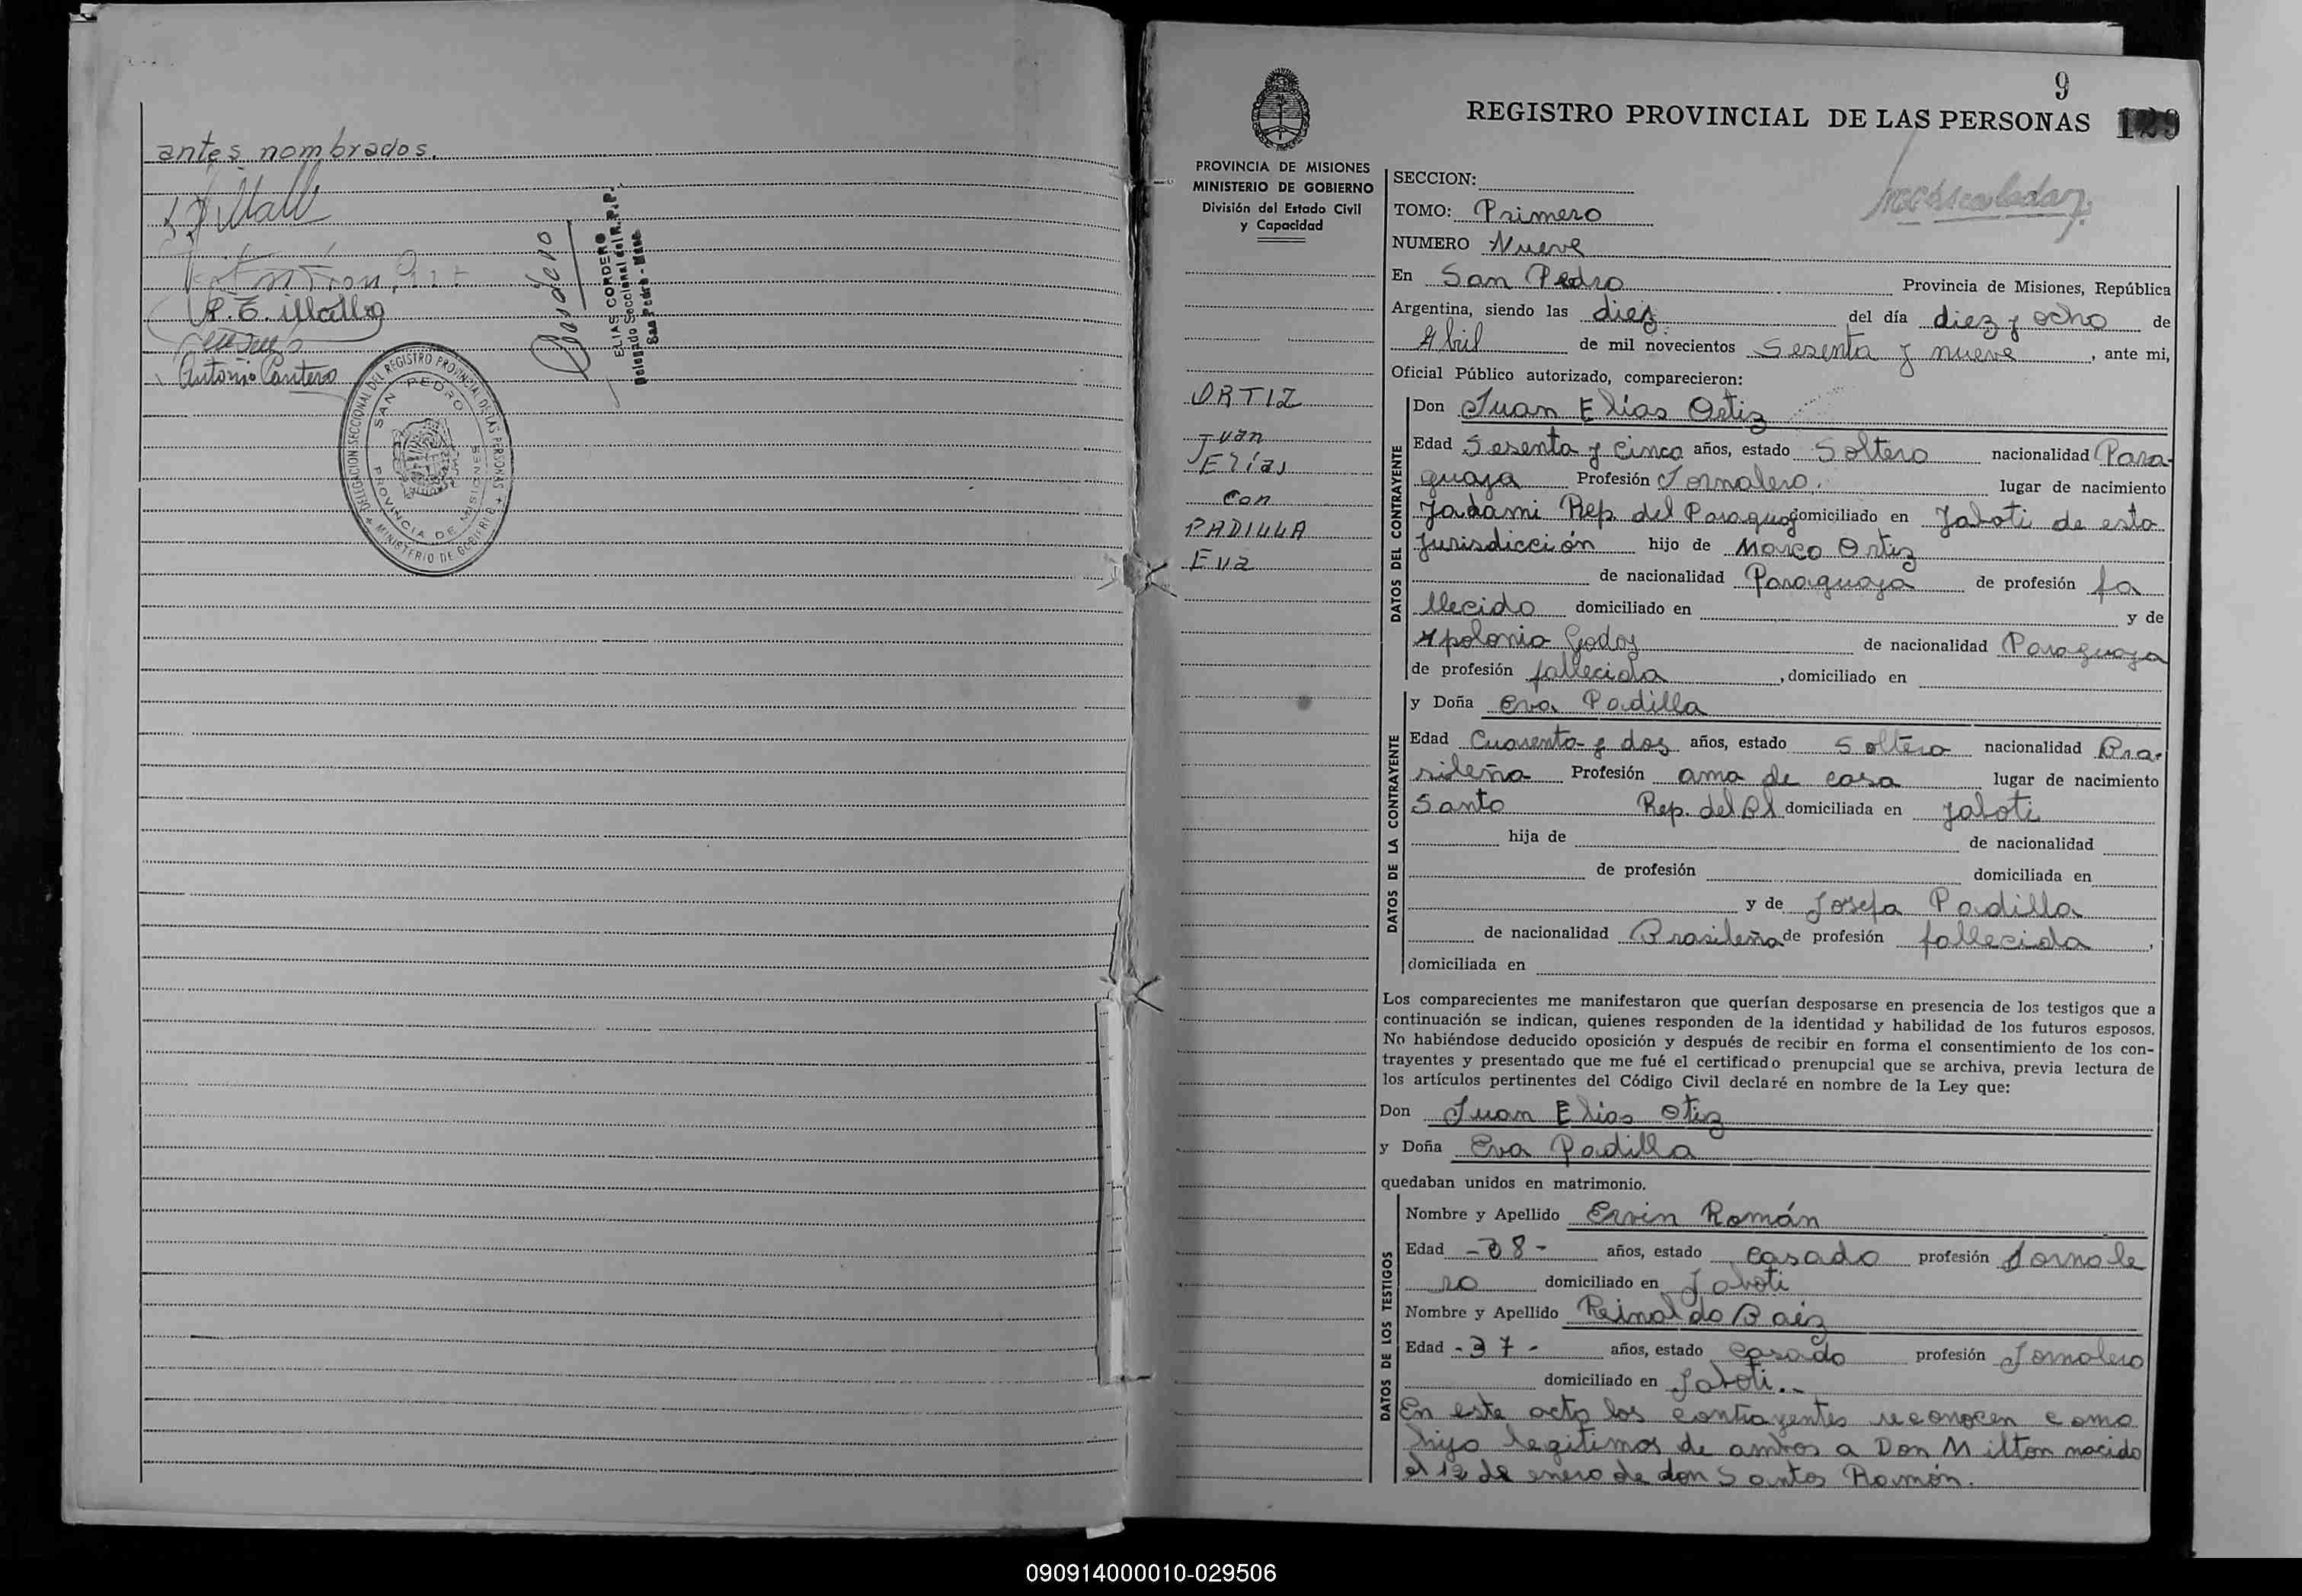 antes nombrados.
P. E. Mattg
Antonio Cantero
Cordero
ELIAS CORDERO
Delegado Seccional del R.P.P.
San Pedro - Mnes.
DELEGACION SECCIONAL DEL REGISTRO PROVINCIAL DE LAS PERSONAS
MINISTERIO DE GOBIERNO
SAN PEDRO
PROVINCIA DE MISIONES
9
REGISTRO PROVINCIAL DE LAS PERSONAS 129
PROVINCIA DE MISIONES
MINISTERIO DE GOBIERNO
División del Estado Civil
y Capacidad
ORTIZ
Juan
Elías
con
PADILLA
Eva
SECCION:
TOMO: Primero
NUMERO Nueve
En San Pedro Provincia de Misiones, República
Argentina, siendo las diez del día diez y ocho de
Abril de mil novecientos Sesenta y nueve, ante mi,
Oficial Público autorizado, comparecieron:
DATOS DEL CONTRAYENTE
Don Juan Elias Ortiz
Edad Sesenta y Cinco años, estado Soltero nacionalidad Para-
guaya Profesión Jornalero. lugar de nacimiento
Rep. del Paraguay domiciliado en Jaboti de esta
Jurisdicción hijo de Marco Ortiz
de nacionalidad Paraguaya de profesión fa
llecido domiciliado en y de
Apolonia Godoy de nacionalidad Paraguaya
de profesión fallecida, domiciliado en
DATOS DE LA CONTRAYENTE
y Doña Eva Padilla
Edad Cuarenta y dos años, estado Soltera nacionalidad Bra-
sileña Profesión ama de casa lugar de nacimiento
Santo Rep. del Bl domiciliada en Jaboti
hija de de nacionalidad
de profesión domiciliada en
y de Josefa Padilla
de nacionalidad Brasileña de profesión fallecida,
domiciliada en
Los comparecientes me manifestaron que querían desposarse en presencia de los testigos que a
continuación se indican, quienes responden de la identidad y habilidad de los futuros esposos.
No habiéndose deducido oposición y después de recibir en forma el consentimiento de los con-
trayentes y presentado que me fué el certificado prenupcial que se archiva, previa lectura de
los artículos pertinentes del Código Civil declaré en nombre de la Ley que:
Don Juan Elias Otiz
y Doña Eva Padilla
quedaban unidos en matrimonio.
DATOS DE LOS TESTIGOS
Nombre y Apellido Ervin Román
Edad -38- años, estado Casado profesión Jornale
ro domiciliado en Jaboti
Nombre y Apellido Reinaldo Baéz
Edad -37- años, estado Casado profesión Jornalero
domiciliado en Jaboti.-
En este acto los contrayentes reconocen como
hijo legitimos de ambos a Don Milton nacido
el 12 de enero de don Santos Ramón.
090914000010-029506